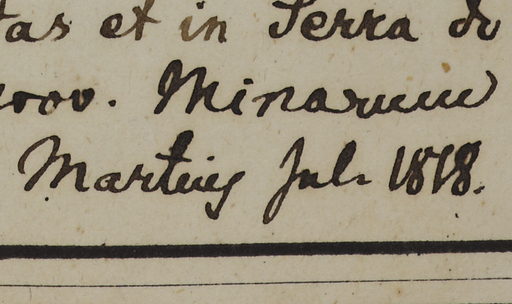 tas et in Serra do
rov. Minarum
Martius Jul. 1818.